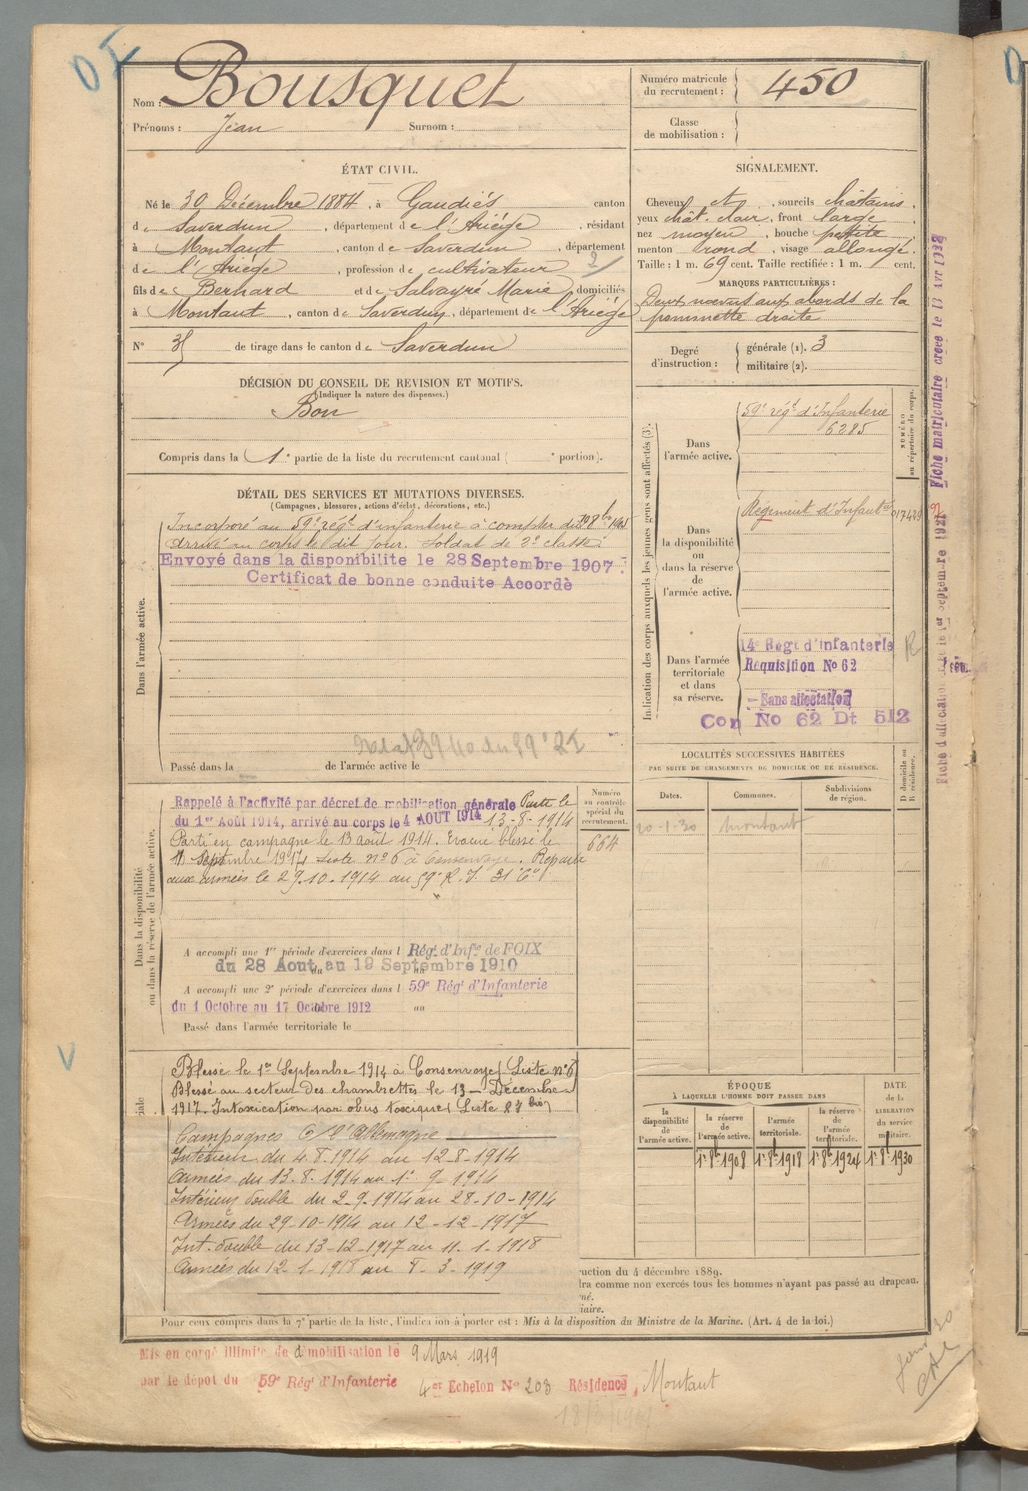 Nom : Bousquet
Prénoms : Jean Surnom :
Numéro matricule du recrutement : 450
Classe de mobilisation :
ÉTAT CIVIL.
Né le 30 Décembre 1884, à Gaudiès canton
de Saverdun, département de l'Ariège, résidant
à Montaut, canton de Saverdun, département
de l'Ariège, profession de cultivateur
fils de Bernard et de Salvayré Marie, domiciliés
à Montaut, canton de Saverdun, département de l'Ariège
N° de tirage dans le canton de Saverdun
SIGNALEMENT.
Cheveux et, sourcils châtains,
yeux chât. clair, front large
nez moyen, bouche petite,
menton rond, visage allongé.
Taille : 1 m. 69 cent. Taille rectifiée : 1 m. cent.
MARQUES PARTICULIÈRES :
Deux nœvus aux abords de la
pommette droite
Degré d'instruction : générale (1). 3
militaire (2).
DÉCISION DU CONSEIL DE REVISION ET MOTIFS.
(Indiquer la nature des dispenses.)
Bon
Compris dans la 1e partie de la liste du recrutement cantonal ( e portion).
DÉTAIL DES SERVICES ET MUTATIONS DIVERSES.
(Campagnes, blessures, actions d'éclat, décorations, etc.)
Dans l'armée active.
Incorporé au 59e régt d'infanterie à compter du 8 bre 1905
Arrivé au corps le dit jour. Soldat de 2e classe.
Envoyé dans la disponibilité le 28 Septembre 1907.
Certificat de bonne conduite Accordé
Passé dans la de l'armée active le
Indication des corps auxquels les jeunes gens sont affectés (3).
NUMÉRO au répertoire du corps.
Dans l'armée active.
59e régt d'Infanterie
6285
Dans la disponibilité ou dans la réserve de l'armée active.
Régiment d'Infantrie 017439
Dans l'armée territoriale et dans sa réserve.
14e Regt d'infanterie
Requisition No 62
Sans affectation
Con No 62 Dt 512
R
LOCALITÉS SUCCESSIVES HABITÉES
PAR SUITE DE CHANGEMENTS DE DOMICILE OU DE RÉSIDENCE.
Dates. Communes. Subdivisions de région. D domicile ou R résidence.
20-1-30 Montaut
Dans la disponibilité ou dans la réserve de l'armée active.
Numéro au contrôle spécial du recrutement.
664
Rappelé à l'activité par décret de mobilisation générale Parti le
du 1er Août 1914, arrivé au corps le 4 AOUT 1914 13-8-1914
Parti en campagne le 13 août 1914. Evacué blessé le
Septembre 1914 Liste n° 6 à Consenvoye. Reparti
aux armées le 29.10.1914 au 59e R.I. 31e Cie
A accompli une 1re période d'exercices dans l Rég. d'Infie de FOIX
du 28 Aout au 19 Septembre 1910
A accompli une 2e période d'exercices dans l 59e Régt d'Infanterie
du 1 Octobre au 17 Octobre 1912 au
Passé dans l'armée territoriale le
Blessé le 1er Septembre 1914 à Consenvoye (Liste n° 6)
Blessé au secteur des chambrettes le 13 Décembre
1917. Intoxication par obus toxiques (Liste 87 bis)
Campagnes C/ l'Allemagne
Intérieur du 4.8.1914 au 12-8-1914
Armées du 13.8.1914 au 1er 9-1914
Intérieur double du 2-9.1914 au 28-10-1914
Armées du 29-10-1914 au 12-12-1917
Int. double du 13-12-1917 au 11-1-1918
Armées du 12-1-1918 au 8-3-1919
ÉPOQUE
À LAQUELLE L'HOMME DOIT PASSER DANS
la disponibilité de l'armée active. la réserve de l'armée active. l'armée territoriale. la réserve de l'armée territoriale.
DATE de la LIBÉRATION du service militaire.
1r 8b 1908 1r 8b 1918 1r 8b 1924 1r 8b 1930
uction du 4 décembre 1889.
dra comme non exercés tous les hommes n'ayant pas passé au drapeau.
né.
iaire.
Pour ceux compris dans la 7e partie de la liste, l'indication à porter est : Mis à la disposition du Ministre de la Marine. (Art. 4 de la loi.)
Mis en congé illimité de démobilisation le 9 Mars 1919
par le dépôt du 59e Régt d'Infanterie 4er Echelon No 203 Résidence, Montaut
Fiche matriculaire créée le